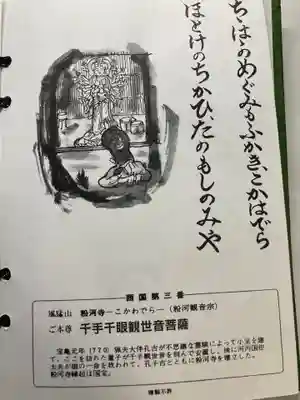 ちゝはゝのめぐみもふかき、こかはでら
ほとけのちかひ、たのもしのみや
西国第三番
風猛山 粉河寺―こかわでら―(粉河観音宗)
ご本尊 千手千眼観世音菩薩
宝亀元年(770)猟夫大伴孔古が不思議な霊験によって小堂を建
て、ここを訪れた童子が千手観世音を刻んで安置し、後に河内国佐
太夫が娘の一命を救われて、孔子古とともに粉河寺を建立した。
粉河寺縁起は国宝。
複製不許